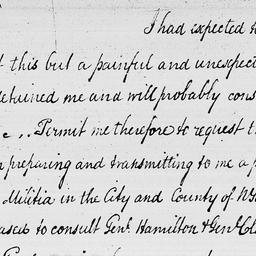 I had expected t
f this but a painful and unexpect
detained me and will probably cons
Permit me therefore to request th
preparing and transmitting to me a p
Militia in the City and County of N
to consult Genl. Hamilton & Genl. Cl